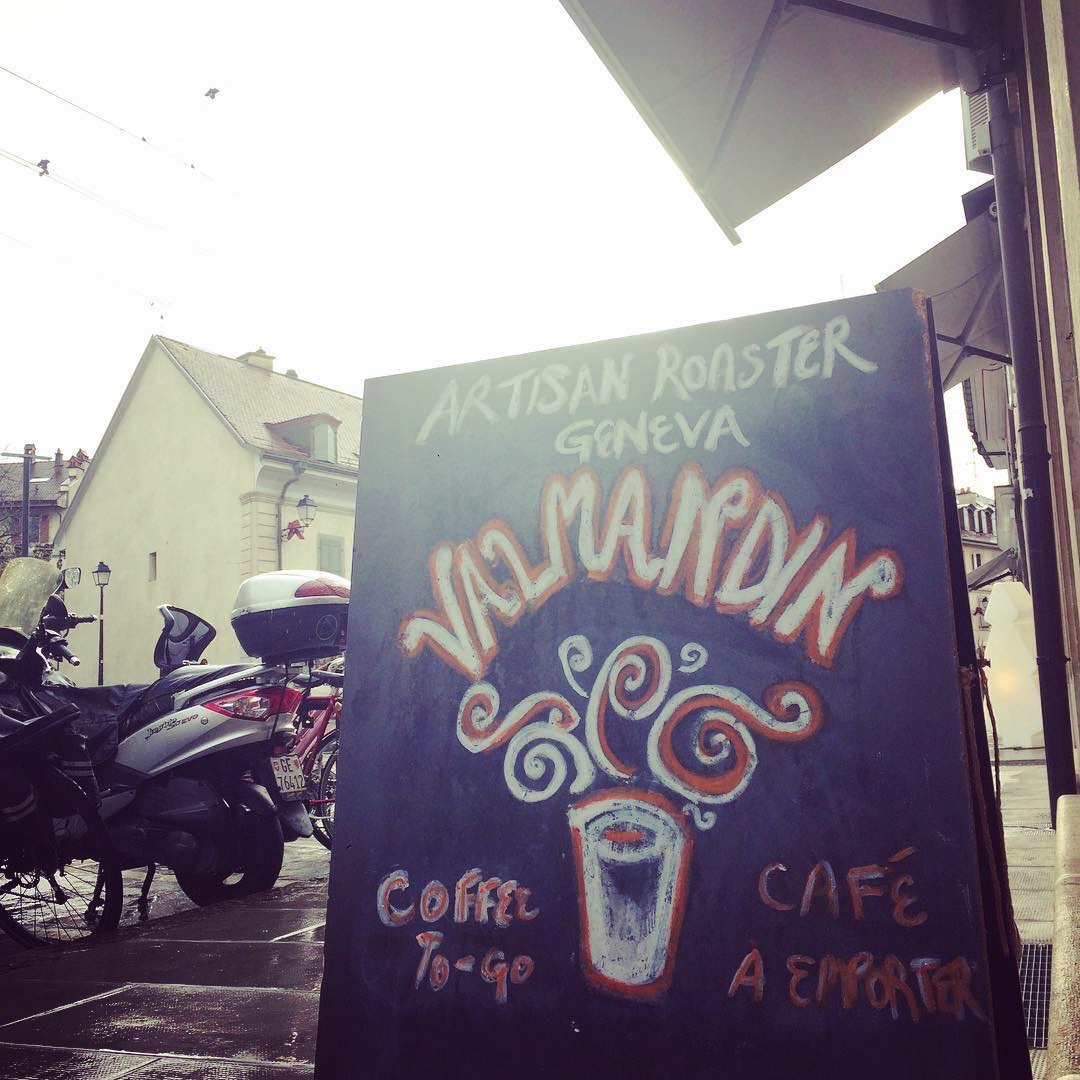 ARTISAN ROASTER
GENEVA
VALMANDIN
COFFEE
TO-GO
CAFÉ
À EMPORTER
GE